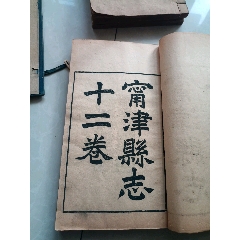 甯津縣志
十二卷